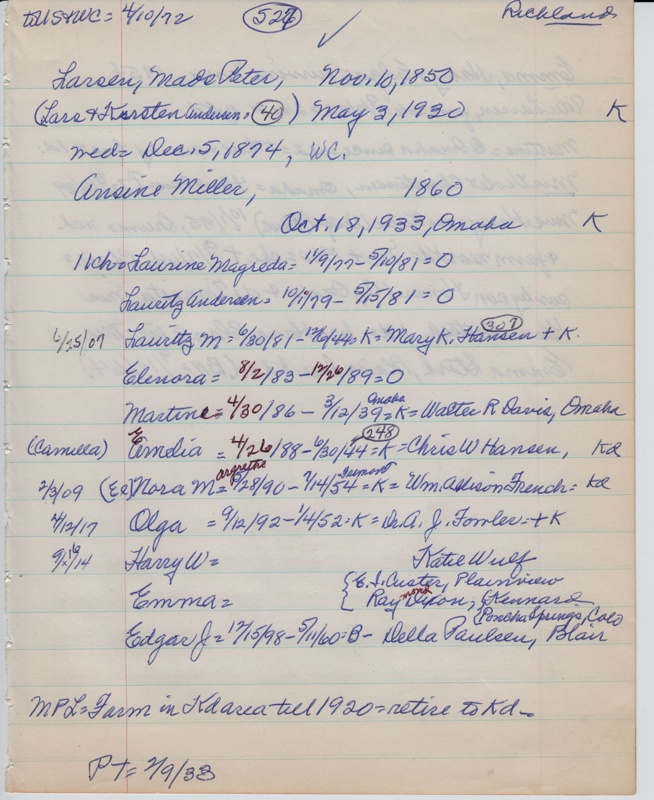 to US & WC = 4/10/72 527 ✓ Richland
Larsen, Mads Peter, Nov. 10, 1850
(Lars & Kirsten Andersen = 40) May 3, 1930 K
wed = Dec. 5, 1874, WC.
Ansine Miller, 1860
Oct. 18, 1933, Omaha K
11 ch = Laurine Magreda = 11/9/77 - 5/10/81 = O
Lauritz Andersen = 10/1/79 - 5/15/81 = O
6/25/07 Lauritz M = 6/30/81 - 12/6/44 = K = Mary K. Hansen + K. 307
Elenora = 8/2/83 - 12/26/89 = O
Martine = 4/30/86 - 3/12/39 = K = Walter R Davis, Omaha
Omaha
248
(Camilla) Emelia = 4/26/88 - 6/30/44 = K = Chris W Hansen, Kd
argrethe
2/3/09 (El) Nora M = 5/28/90 - 7/14/54 = K = Wm. Addison French = Kd
4/12/17 Olga = 9/12/92 - 1/4/52 = K = Dr. A. J. Fowler = + K
14 Harry W = Katie Wulf
Emma = { E. I. Custer, Plainview
Raymond Dixon, Kennard
Poncha Springs, Colo
Edgar J = 12/15/98 - 5/11/60 = B - Della Paulsen, Blair
MPL = Farm in Kd area till 1920 = retire to Kd -
PT = 2/9/38